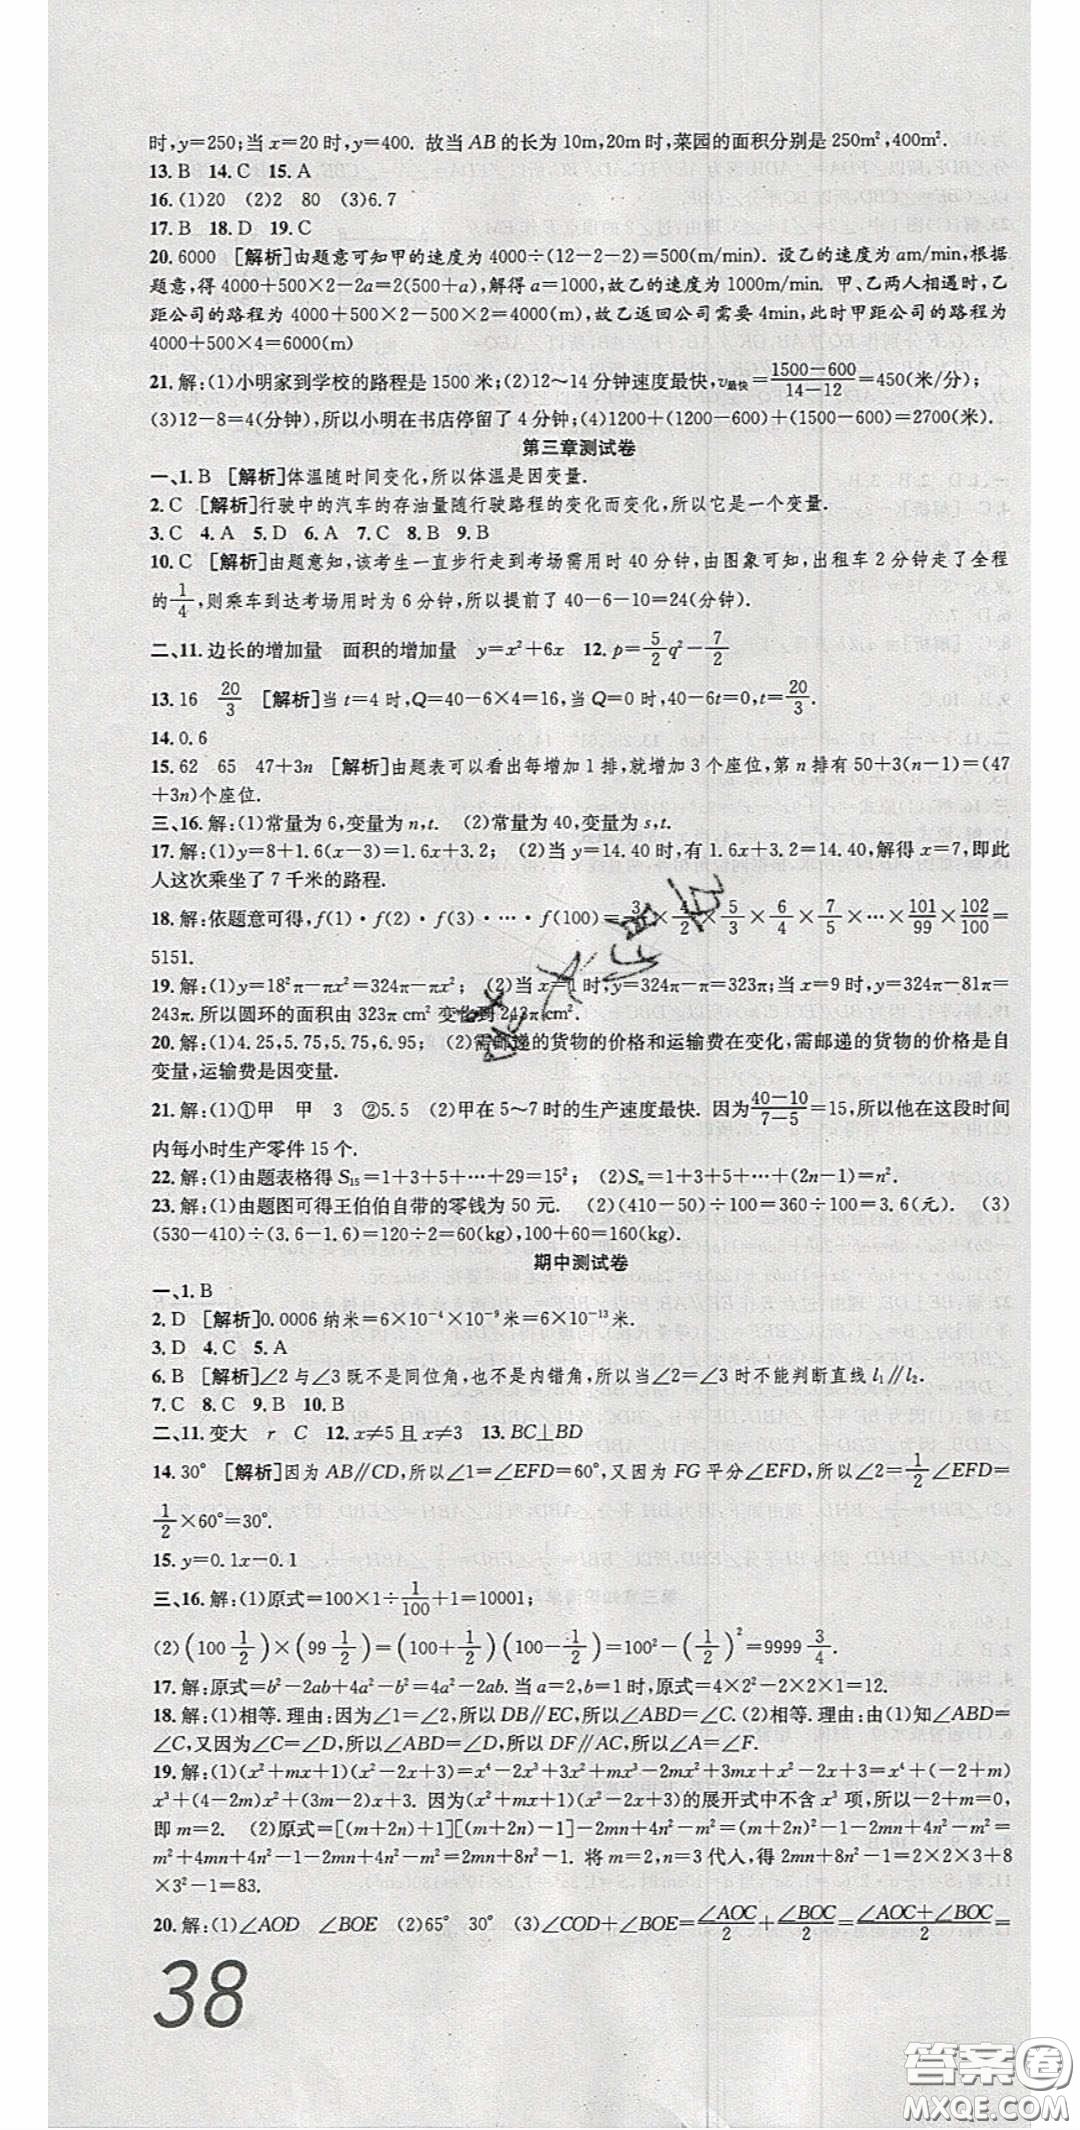 时,y=250;当 x=20 时,y=400. 故当 AB 的长为 10m,20m 时,菜园的面积分别是 250m²,400m².
13. B 14. C 15. A
16. (1)20 (2)2 80 (3)6.7
17. B 18. D 19. C
20. 6000 [解析]由题意可知甲的速度为 4000÷(12-2-2)=500(m/min). 设乙的速度为 am/min,根据
题意,得 4000+500×2-2a=2(500+a),解得 a=1000,故乙的速度为 1000m/min. 甲、乙两人相遇时,乙
距公司的路程为 4000+500×2-500×2=4000(m),故乙返回公司需要 4min,此时甲距公司的路程为
4000+500×4=6000(m)
21. 解:(1)小明家到学校的路程是 1500 米;(2)12~14 分钟速度最快,v最快=(1500-600)/(14-12)=450(米/分);
(3)12-8=4(分钟),所以小明在书店停留了 4 分钟;(4)1200+(1200-600)+(1500-600)=2700(米).
第三章测试卷
一、1. B [解析]体温随时间变化,所以体温是因变量.
2. C [解析]行驶中的汽车的存油量随行驶路程的变化而变化,所以它是一个变量.
3. C 4. A 5. D 6. A 7. C 8. B 9. B
10. C [解析]由题意知,该考生一直步行走到考场需用时 40 分钟,由图象可知,出租车 2 分钟走了全程
的1/4,则乘车到达考场用时为 6 分钟,所以提前了 40-6-10=24(分钟).
二、11. 边长的增加量 面积的增加量 y=x²+6x 12. p=5/2q²-7/2
13. 16 20/3 [解析]当 t=4 时,Q=40-6×4=16,当 Q=0 时,40-6t=0,t=20/3.
14. 0.6
15. 62 65 47+3n [解析]由题表可以看出每增加 1 排,就增加 3 个座位,第 n 排有 50+3(n-1)=(47
+3n)个座位.
三、16. 解:(1)常量为 6,变量为 n,t. (2)常量为 40,变量为 s,t.
17. 解:(1)y=8+1.6(x-3)=1.6x+3.2; (2)当 y=14.40 时,有 1.6x+3.2=14.40,解得 x=7,即此
人这次乘坐了 7 千米的路程.
18. 解:依题意可得,f(1)·f(2)·f(3)·…·f(100)=3/1×4/2×5/3×6/4×7/5×…×101/99×102/100=
5151.
19. 解:(1)y=18²π-πx²=324π-πx²; (2)当 x=1 时,y=324π-π=323π;当 x=9 时,y=324π-81π=
243π. 所以圆环的面积由 323π cm² 变化到 243π cm².
20. 解:(1)4.25,5.75,5.75,6.95; (2)需邮递的货物的价格和运输费在变化,需邮递的货物的价格是自
变量,运输费是因变量.
21. 解:(1)①甲 甲 3 ②5.5 (2)甲在 5~7 时的生产速度最快. 因为(40-10)/(7-5)=15,所以他在这段时间
内每小时生产零件 15 个.
22. 解:(1)由题表格得 S₁₅=1+3+5+…+29=15²; (2)Sₙ=1+3+5+…+(2n-1)=n².
23. 解:(1)由题图可得王伯伯自带的零钱为 50 元. (2)(410-50)÷100=360÷100=3.6(元). (3)
(530-410)÷(3.6-1.6)=120÷2=60(kg),100+60=160(kg).
期中测试卷
一、1. B
2. D [解析]0.0006 纳米=6×10⁻⁴×10⁻⁹米=6×10⁻¹³米.
3. D 4. C 5. A
6. B [解析]∠2 与∠3 既不是同位角,也不是内错角,所以当∠2=∠3 时不能判断直线 l₁∥l₂.
7. C 8. C 9. B 10. B
二、11. 变大 r C 12. x≠5 且 x≠3 13. BC⊥BD
14. 30° [解析]因为 AB∥CD,所以∠1=∠EFD=60°,又因为 FG 平分∠EFD,所以∠2=1/2∠EFD=
1/2×60°=30°.
15. y=0.1x-0.1
三、16. 解:(1)原式=100×1÷1/100+1=10001;
(2)(100 1/2)×(99 1/2)=(100+1/2)(100-1/2)=100²-(1/2)²=9999 3/4.
17. 解:原式=b²-2ab+4a²-b²=4a²-2ab. 当 a=2,b=1 时,原式=4×2²-2×2×1=12.
18. 解:(1)相等. 理由:因为∠1=∠2,所以 DB∥EC,所以∠ABD=∠C. (2)相等. 理由:由(1)知∠ABD=
∠C,又因为∠C=∠D,所以∠ABD=∠D,所以 DF∥AC,所以∠A=∠F.
19. 解:(1)(x²+mx+1)(x²-2x+3)=x⁴-2x³+3x²+mx³-2mx²+3mx+x²-2x+3=x⁴+(-2+m)
x³+(4-2m)x²+(3m-2)x+3. 因为(x²+mx+1)(x²-2x+3)的展开式中不含 x³ 项,所以-2+m=0,
即 m=2. (2)原式=[(m+2n)+1][(m+2n)-1]-2mn+4n²-m²=(m+2n)²-1-2mn+4n²-m²=
m²+4mn+4n²-1-2mn+4n²-m²=2mn+8n²-1. 将 m=2,n=3 代入,得 2mn+8n²-1=2×2×3+8
×3²-1=83.
20. 解:(1)∠AOD ∠BOE (2)65° 30° (3)∠COD+∠BOE=∠AOC/2+∠BOC/2=(∠AOC+∠BOC)/2=
38
答案圈
MXQE.COM